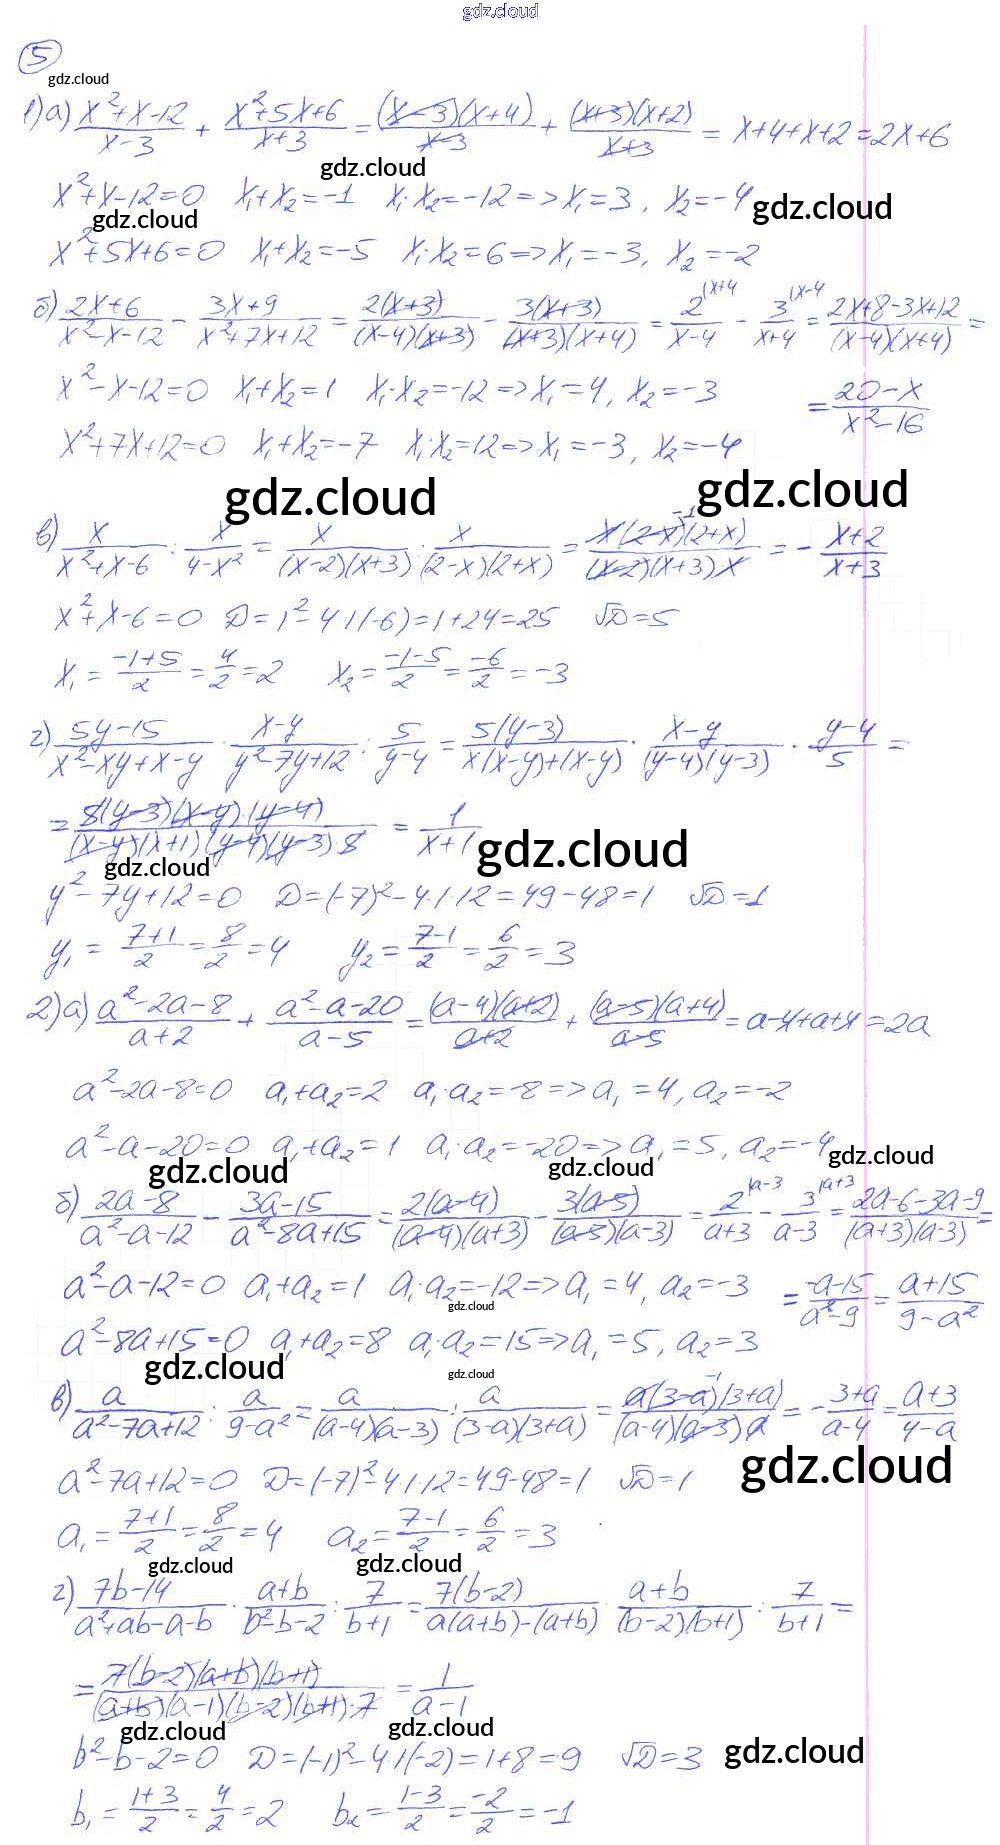 gdz.cloud
5
gdz.cloud
1) а) (x²+x-12)/(x-3) + (x²+5x+6)/(x+3) = ((x-3)(x+4))/(x-3) + ((x+3)(x+2))/(x+3) = x+4+x+2=2x+6
gdz.cloud
x²+x-12=0 x₁+x₂=-1 x₁·x₂=-12=>x₁=3, x₂=-4
gdz.cloud gdz.cloud
x²+5x+6=0 x₁+x₂=-5 x₁·x₂=6=>x₁=-3, x₂=-2
б) (2x+6)/(x²-x-12) - (3x+9)/(x²+7x+12) = (2(x+3))/((x-4)(x+3)) - (3(x+3))/((x+3)(x+4)) = 2^(x+4/(x-4) - 3^(x-4/(x+4) = (2x+8-3x+12)/((x-4)(x+4)) =
x²-x-12=0 x₁+x₂=1 x₁·x₂=-12=>x₁=4, x₂=-3 = (20-x)/(x²-16)
x²+7x+12=0 x₁+x₂=-7 x₁·x₂=12=>x₁=-3, x₂=-4
gdz.cloud gdz.cloud
в) x/(x²+x-6) : x/(4-x²) = x/((x-2)(x+3)) : x/((2-x)(2+x)) = (x(2-x)⁻¹(2+x))/((x-2)(x+3)x) = -(x+2)/(x+3)
x²+x-6=0 D=1²-4·1·(-6)=1+24=25 √D=5
x₁=(-1+5)/2=4/2=2 x₂=(-1-5)/2=-6/2=-3
г) (5y-15)/(x²-xy+x-y) · (x-y)/(y²-7y+12) : 5/(y-4) = (5(y-3))/(x(x-y)+(x-y)) · (x-y)/((y-4)(y-3)) · (y-4)/5 =
= (5(y-3)(x-y)·(y-4))/((x-y)(x+1)(y-4)(y-3)·5) = 1/(x+1)
gdz.cloud gdz.cloud
y²-7y+12=0 D=(-7)²-4·1·12=49-48=1 √D=1
y₁=(7+1)/2=8/2=4 y₂=(7-1)/2=6/2=3
2) а) (a²-2a-8)/(a+2) + (a²-a-20)/(a-5) = ((a-4)(a+2))/(a+2) + ((a-5)(a+4))/(a-5) = a-4+a+4=2a
a²-2a-8=0 a₁+a₂=2 a₁·a₂=-8=>a₁=4, a₂=-2
a²-a-20=0 a₁+a₂=1 a₁·a₂=-20=>a₁=5, a₂=-4
gdz.cloud gdz.cloud gdz.cloud
б) (2a-8)/(a²-a-12) - (3a-15)/(a²-8a+15) = (2(a-4))/((a-4)(a+3)) - (3(a-5))/((a-5)(a-3)) = 2^(a-3/(a+3) - 3^(a+3/(a-3) = (2a-6-3a-9)/((a+3)(a-3)) =
a²-a-12=0 a₁+a₂=1 a₁·a₂=-12=>a₁=4, a₂=-3 = (-a-15)/(a²-9) = (a+15)/(9-a²)
gdz.cloud
a²-8a+15=0 a₁+a₂=8 a₁·a₂=15=>a₁=5, a₂=3
gdz.cloud gdz.cloud
в) a/(a²-7a+12) : a/(9-a²) = a/((a-4)(a-3)) : a/((3-a)(3+a)) = (a(3-a)⁻¹(3+a))/((a-4)(a-3)a) = -(3+a)/(a-4) = (a+3)/(4-a)
gdz.cloud
a²-7a+12=0 D=(-7)²-4·1·12=49-48=1 √D=1
a₁=(7+1)/2=8/2=4 a₂=(7-1)/2=6/2=3
gdz.cloud gdz.cloud
г) (7b-14)/(a²+ab-a-b) · (a+b)/(b²-b-2) : 7/(b+1) = (7(b-2))/(a(a+b)-(a+b)) · (a+b)/((b-2)(b+1)) : 7/(b+1) =
= (7(b-2)(a+b)(b+1))/((a+b)(a-1)(b-2)(b+1)·7) = 1/(a-1)
gdz.cloud gdz.cloud gdz.cloud
b²-b-2=0 D=(-1)²-4·1(-2)=1+8=9 √D=3
b₁=(1+3)/2=4/2=2 b₂=(1-3)/2=-2/2=-1